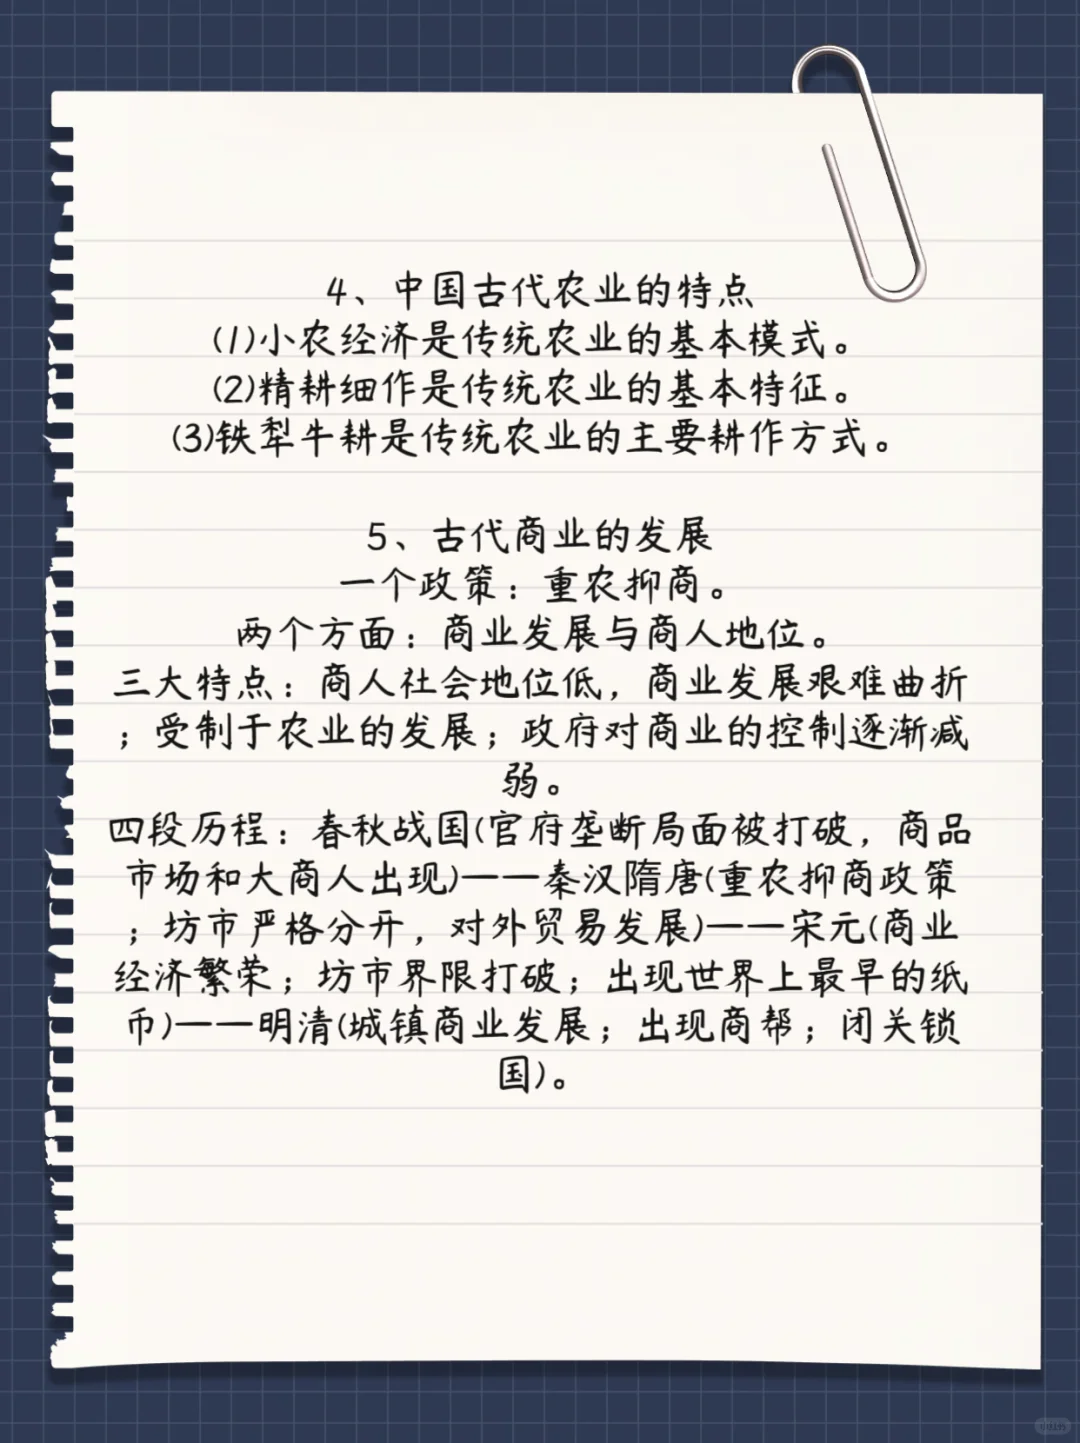 4、中国古代农业的特点
(1)小农经济是传统农业的基本模式。
(2)精耕细作是传统农业的基本特征。
(3)铁犁牛耕是传统农业的主要耕作方式。
5、古代商业的发展
一个政策：重农抑商。
两个方面：商业发展与商人地位。
三大特点：商人社会地位低，商业发展艰难曲折
；受制于农业的发展；政府对商业的控制逐渐减
弱。
四段历程：春秋战国(官府垄断局面被打破，商品
市场和大商人出现)——秦汉隋唐(重农抑商政策
；坊市严格分开，对外贸易发展)——宋元(商业
经济繁荣；坊市界限打破；出现世界上最早的纸
币)——明清(城镇商业发展；出现商帮；闭关锁
国)。